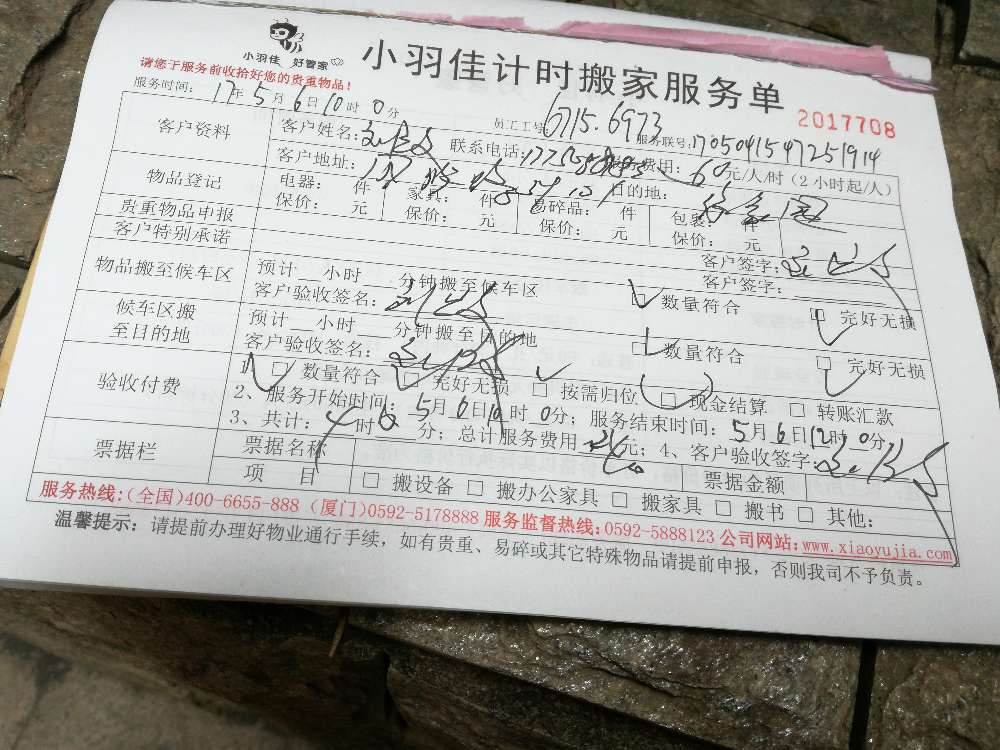 小羽佳 好管家
小羽佳计时搬家服务单
请您于服务前收拾好您的贵重物品!
2017708
服务时间: 17年 5月 6日 10时 0分
员工工号 6715.6973 服务联号: 1705041547251914
客户资料
客户姓名: 联系电话: 费用: 60元/人/时(2小时起/人)
客户地址: 目的地:
物品登记
电器: 件 家具: 件 易碎品: 件 包裹: 件
保价: 元 保价: 元 保价: 元 保价: 元
贵重物品申报
客户签字:
客户特别承诺
客户签字:
物品搬至候车区
预计__小时__分钟搬至候车区
客户验收签名:
数量符合 完好无损
候车区搬至目的地
预计__小时__分钟搬至目的地
客户验收签名:
数量符合 完好无损
验收付费
1、□ 数量符合 □ 完好无损 □ 按需归位 (□ 现金结算 □ 转账汇款
2、服务开始时间: 5月6日10时 0分; 服务结束时间: 5月6日12时 0分
3、共计: 4时 0分; 总计服务费用 元; 4、客户验收签字:
票据栏
票据名称 票据金额
项 目 □ 搬设备 □ 搬办公家具 □ 搬家具 □ 搬书 □ 其他:
服务热线:(全国)400-6655-888 (厦门)0592-5178888 服务监督热线:0592-5888123 公司网站:www.xiaoyujia.com
温馨提示: 请提前办理好物业通行手续, 如有贵重、易碎或其它特殊物品请提前申报, 否则我司不予负责。